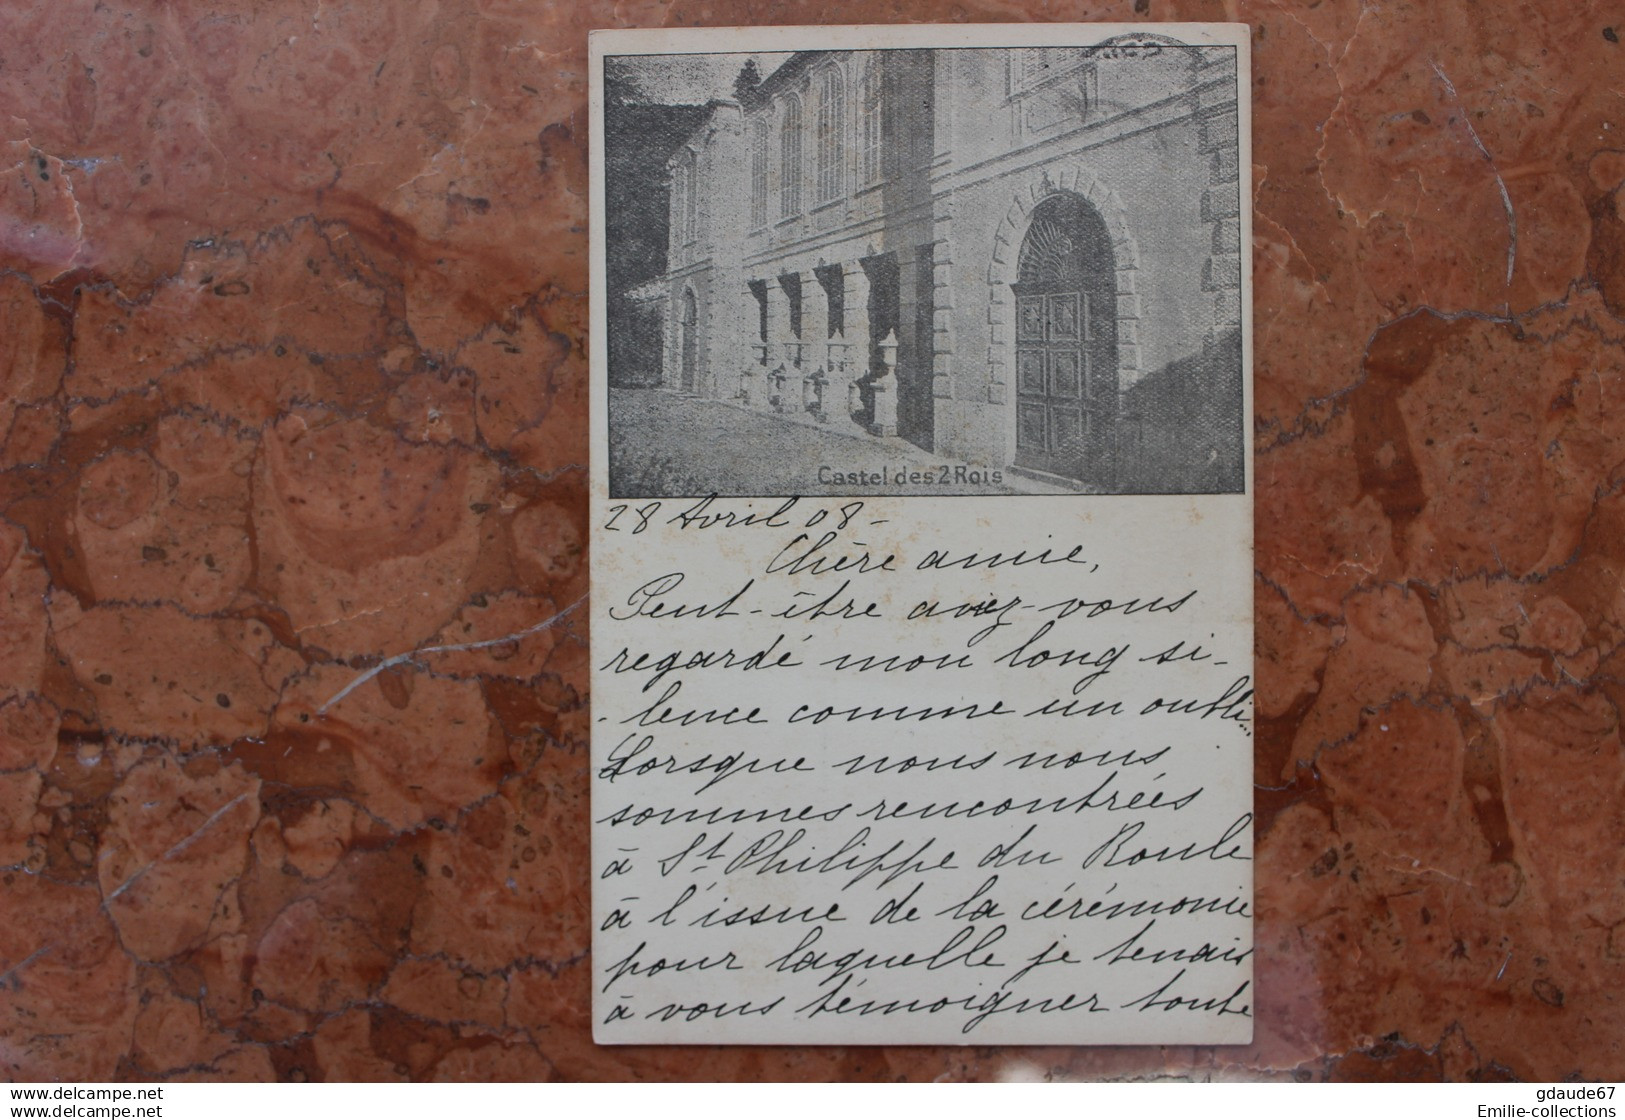 Castel des 2 Rois
28 Avril 08 -
Chère amie,
Peut-être aviez-vous
regardé mon long si-
-lence comme un oubli...
Lorsque nous nous
sommes rencontrées
à St Philippe du Roule
à l'issue de la cérémonie
pour laquelle je tenais
à vous témoigner toute
www.delcampe.net
gdaude67
www.delcampe.net
Emilie-collections